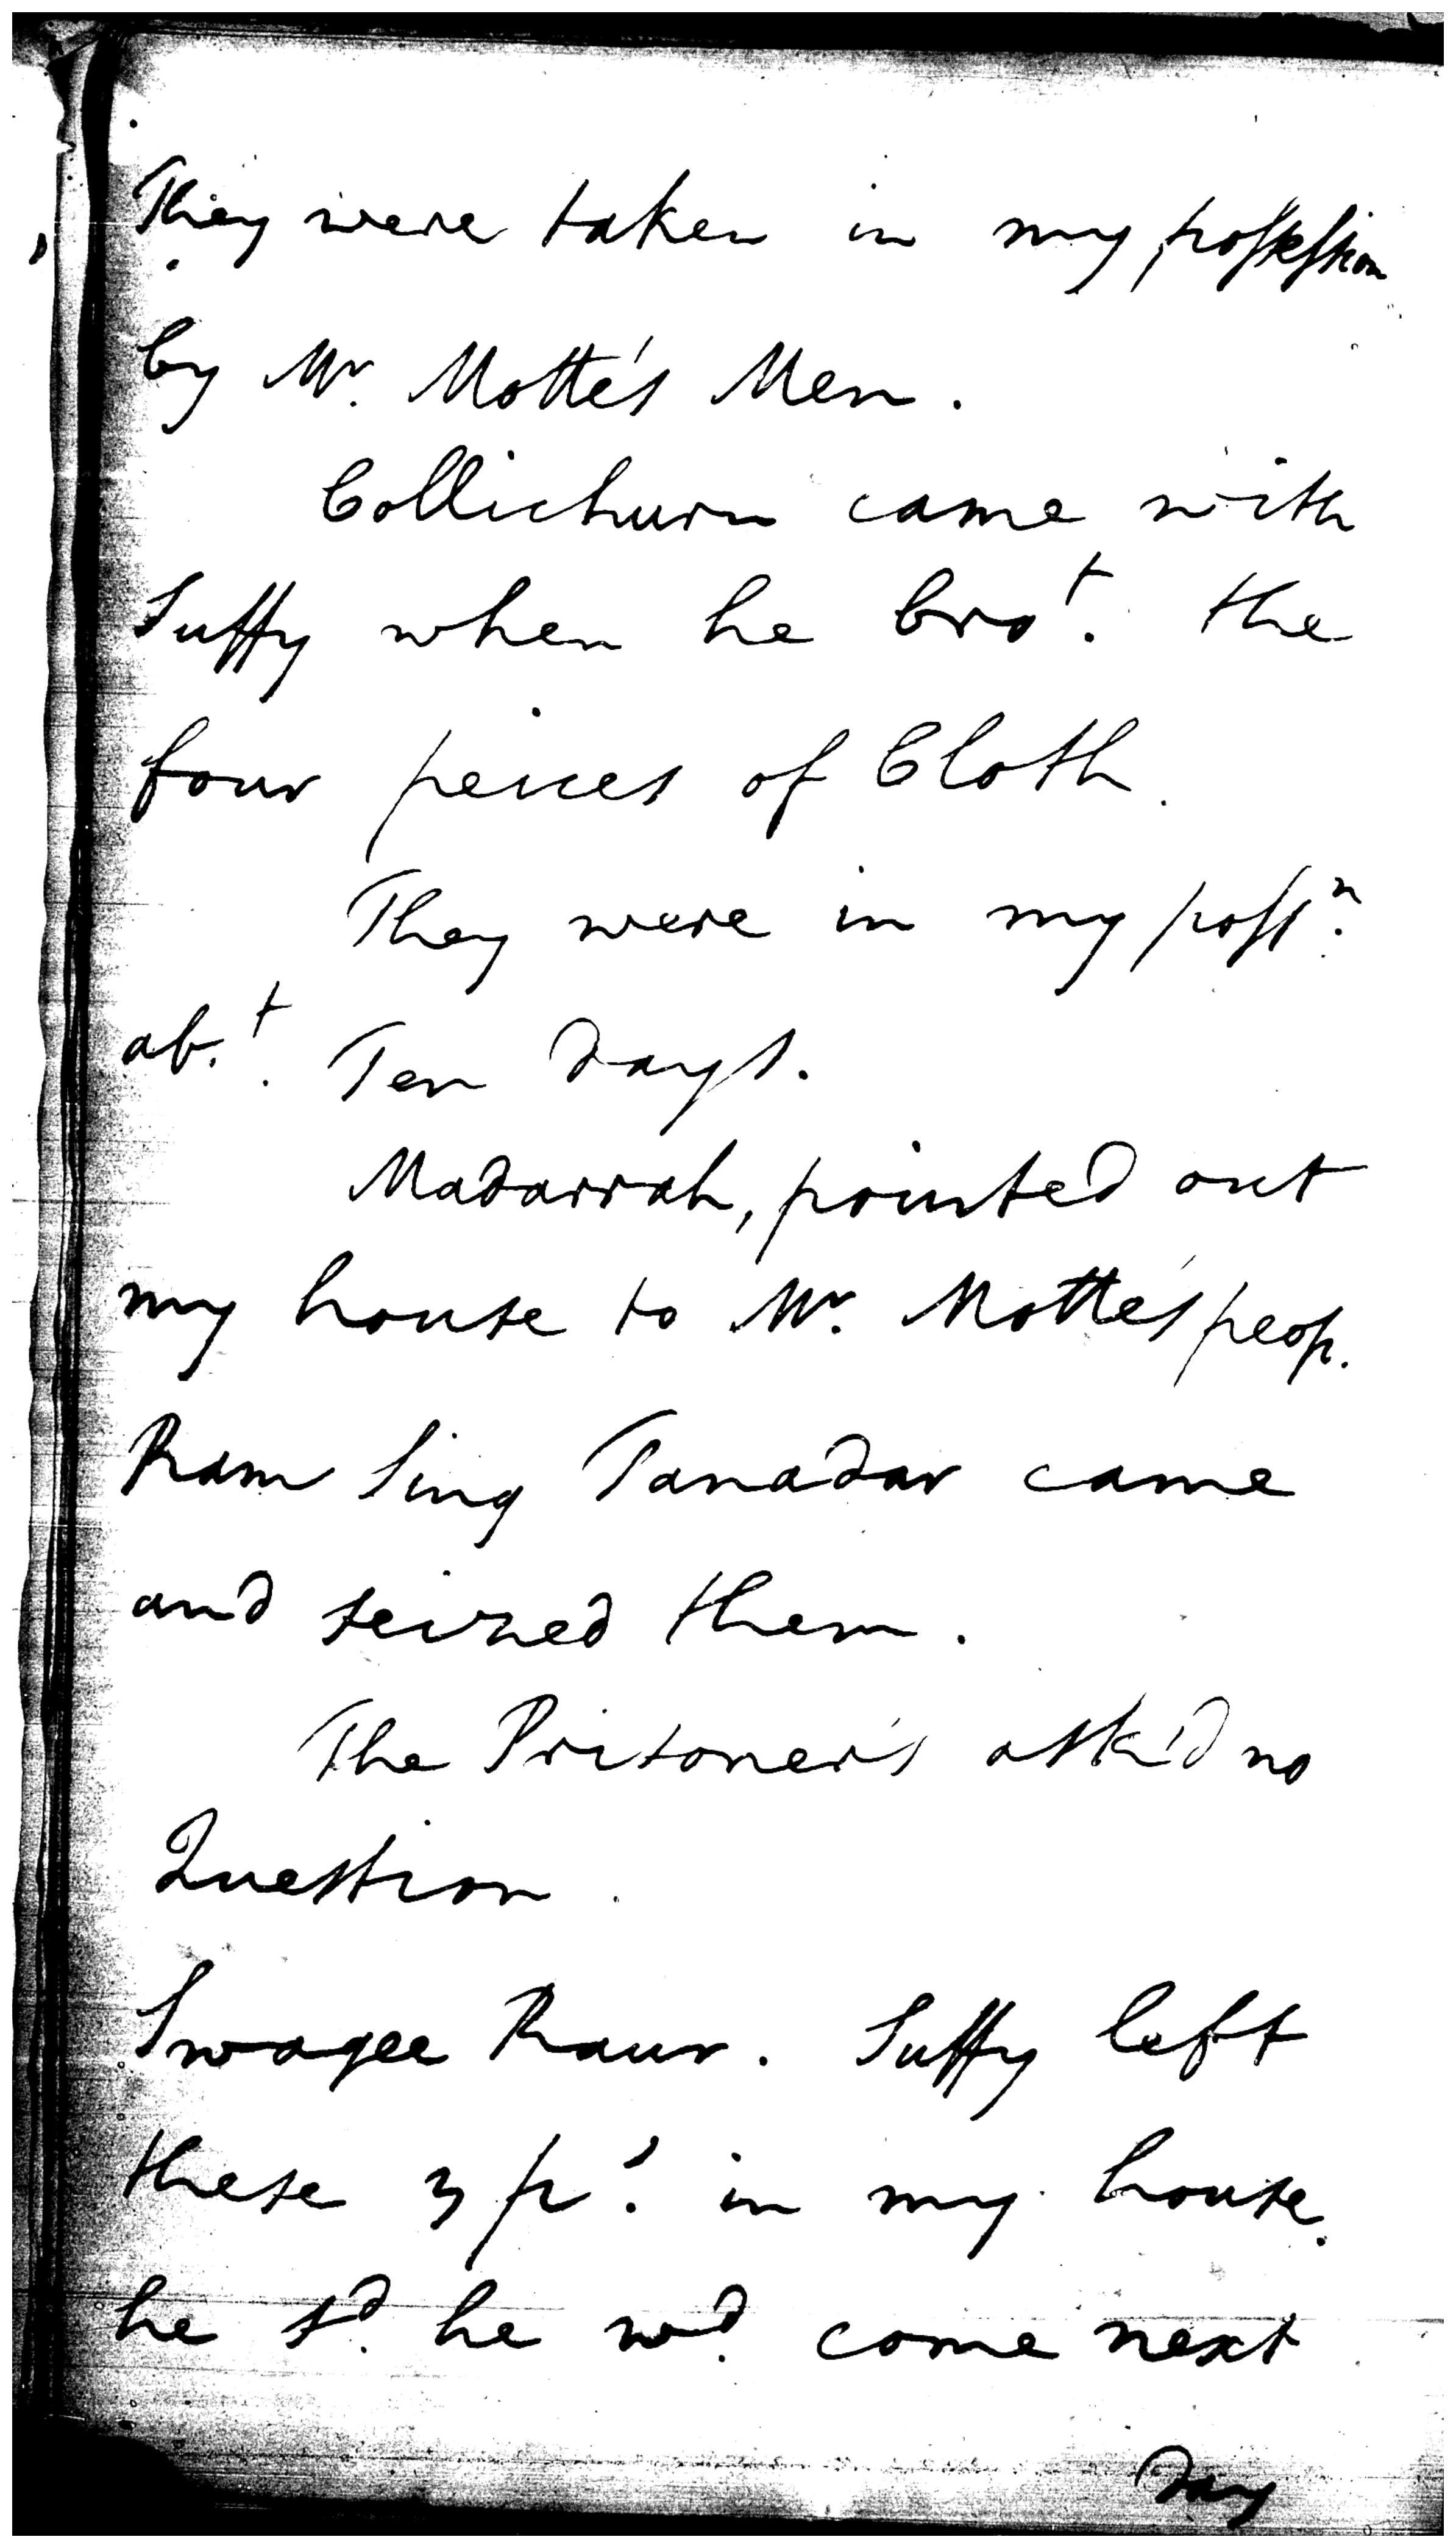 They were taken in my possession
by Mr. Motte's Men.
Collichurn came with
Suffy when he bro.t the
four peices of Cloth.
They were in my poss.n
ab.t Ten Days.
Madarrah, pointed out
my house to Mr. Motte's peop.
Ram Sing Tanadar came
and seized them.
The Prisoner's ask'd no
Question.
Swagee Raur. Suffy left
these 3 p.s in my house.
he s.d he wo.d come next
Day